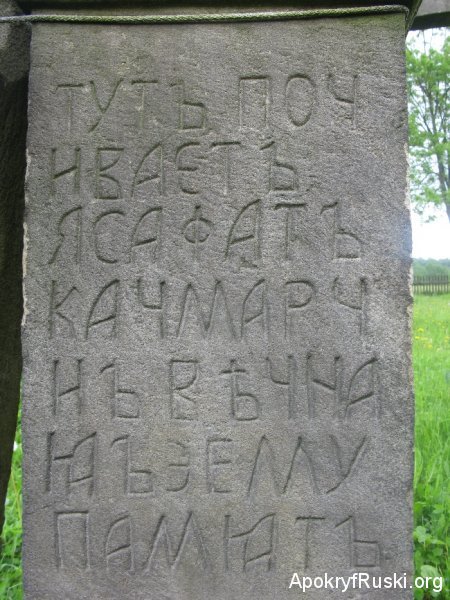 ТУТЪ ПОЧ
ИВАЄТЪ
ЯСАФАТЪ
КАЧМАРЧ
ИЪ ВѢЧНА
ꙖЪ ЭЕМУ
ПАМЮТЪ
ApokryfRuski.org